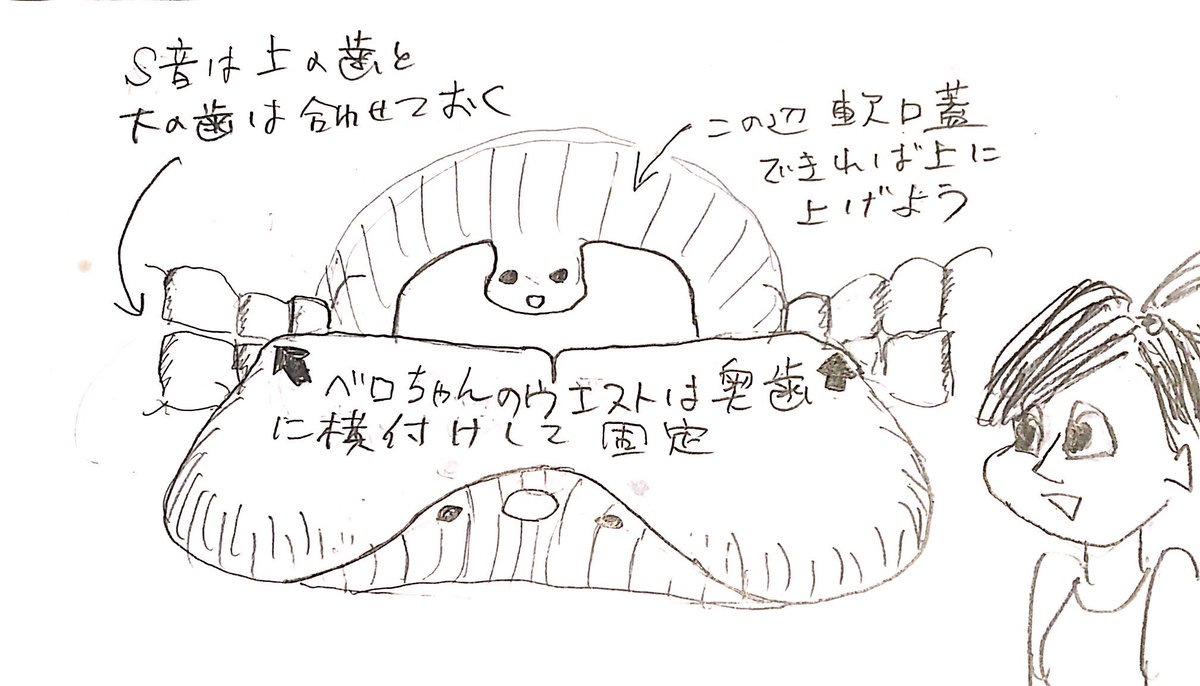 S音は上の歯と
下の歯は合わせておく
この辺 軟口蓋
できれば上に
上げよう
ベロちゃんのウエストは奥歯
に横付けして 固定